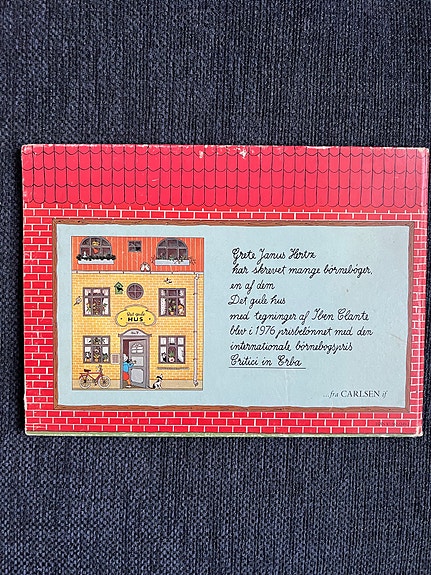 Grete Janus Hertz
har skrevet mange børnebøger,
en af dem
Det gule hus
med tegninger af Iben Clante
blev i 1976 prisbelønnet med den
internationale børnebogspris
Critici in Erba
Det gule
HUS
...fra CARLSEN if